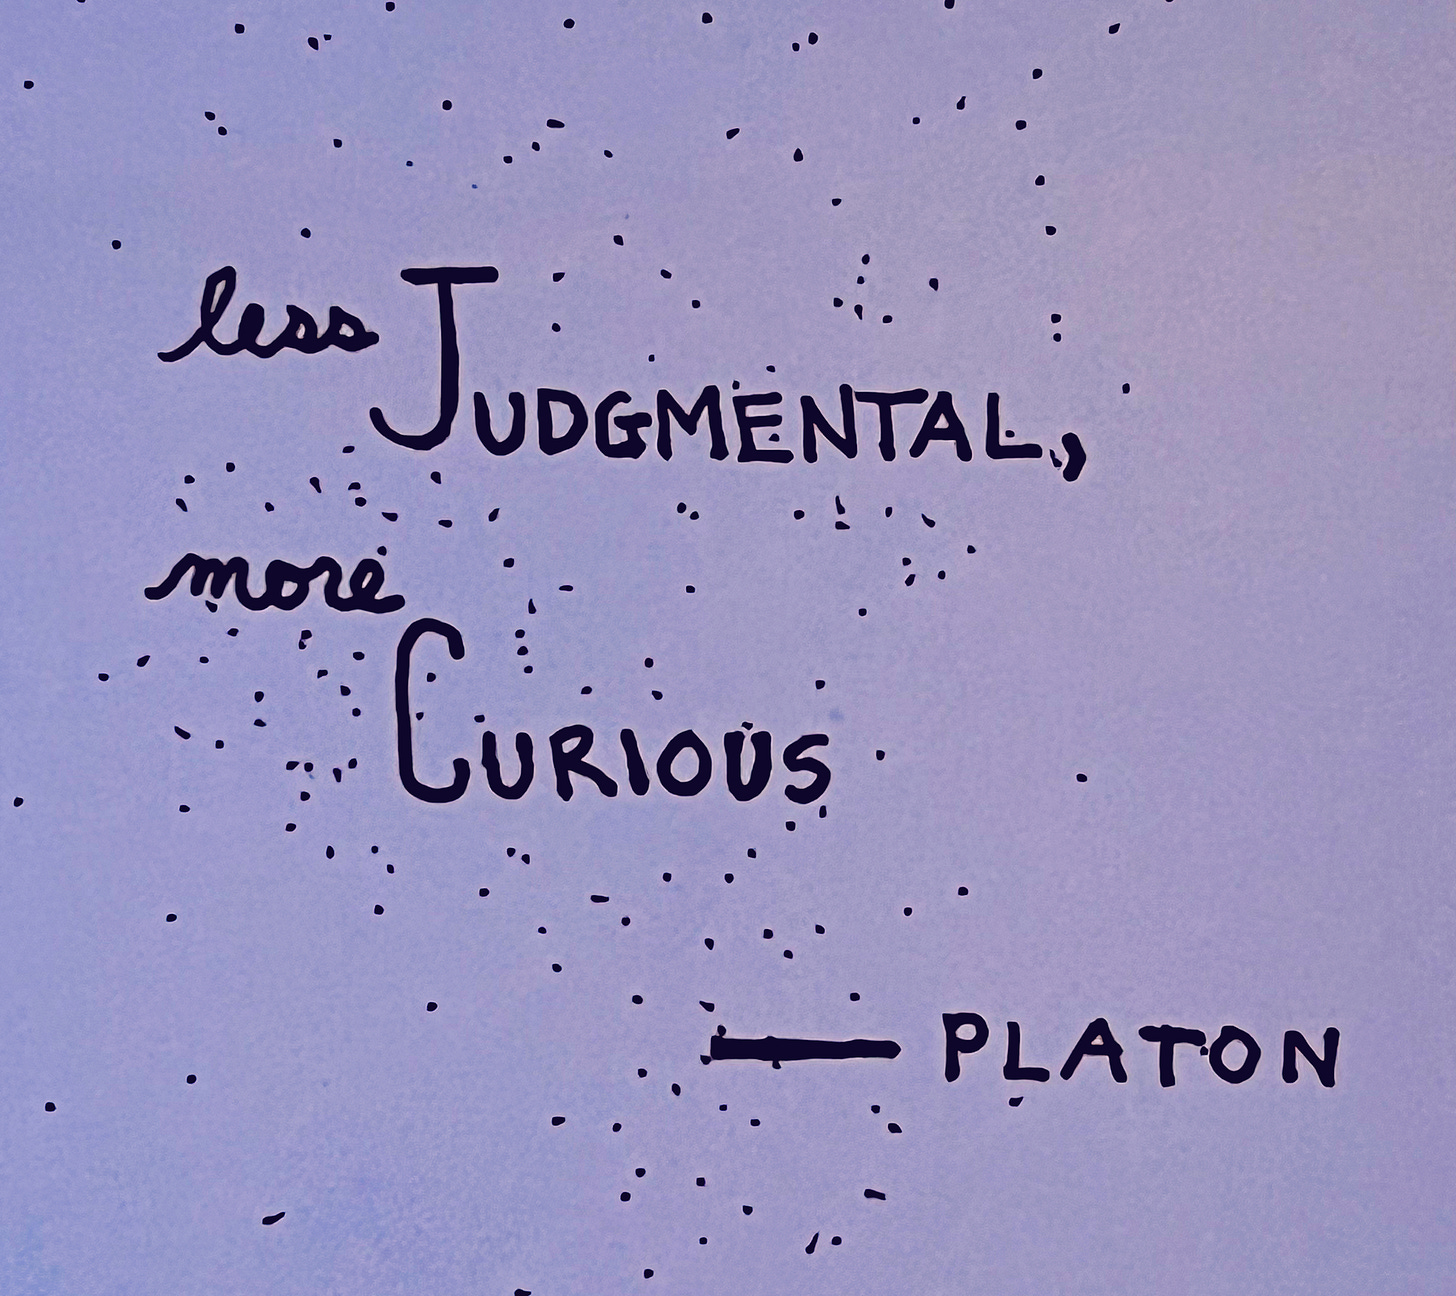 less JUDGMENTAL,
more
CURIOUS
— PLATON